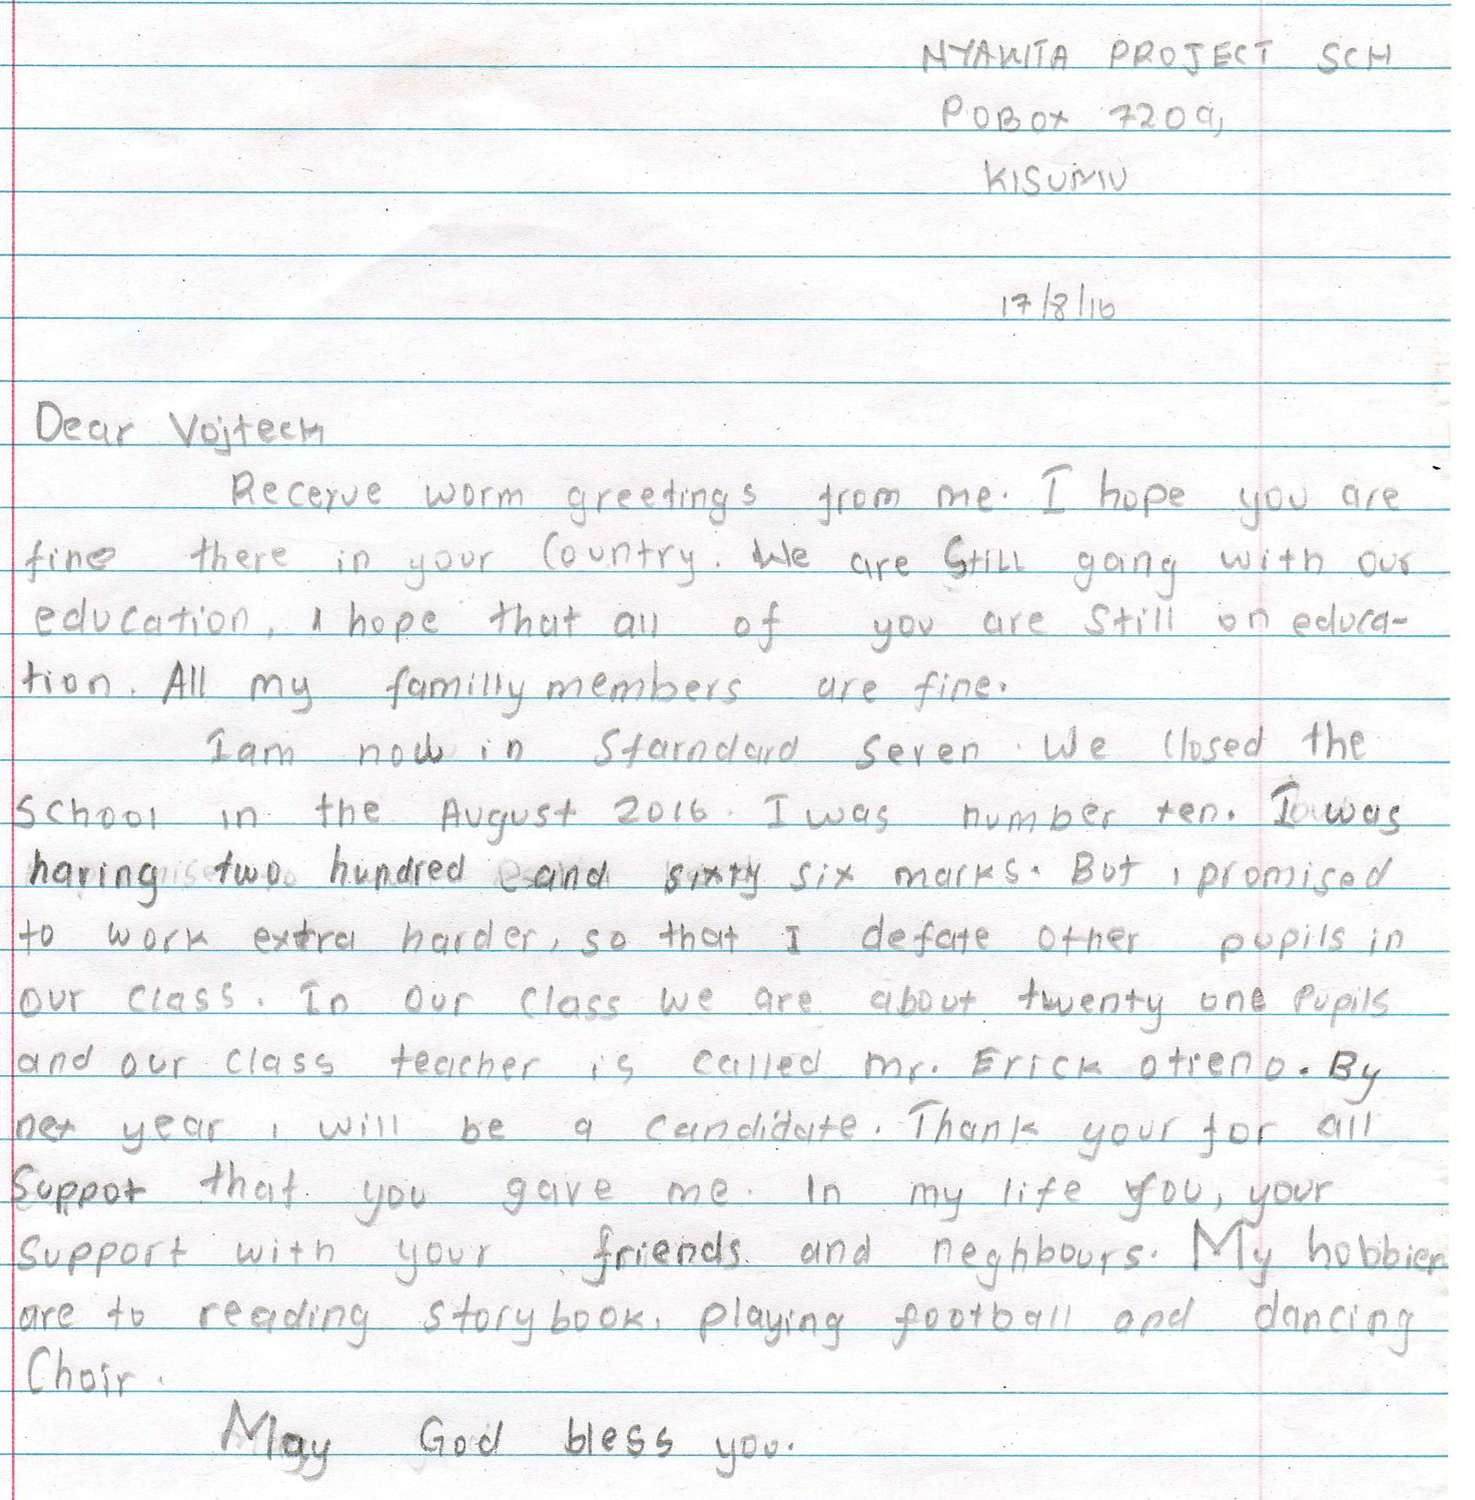 NYAWITA PROJECT SCH
POBOX 7209,
KISUMU
17/8/16
Dear Vojtech
Receyve worm greetings from me. I hope you are
fine there in your Country. We are Still gong with our
education, I hope that all of you are Still on educa-
tion. All my familly members are fine.
Iam now in Starndard Seven. We Closed the
School in the August 2016. I was number ten. I was
having two hundred and sixty six marks. But i promised
to work extra harder, so that I defate other pupils in
our class. In our class we are about twenty one Pupils
and our class teacher is called Mr. Erick otieno. By
nex year i will be a candidate. Thank your for all
Suppot that you gave me. In my life you, your
Support with your friends and neghbours. My hobbien
are to reading storybook, playing football and dancing
Choir.
May God bless you.